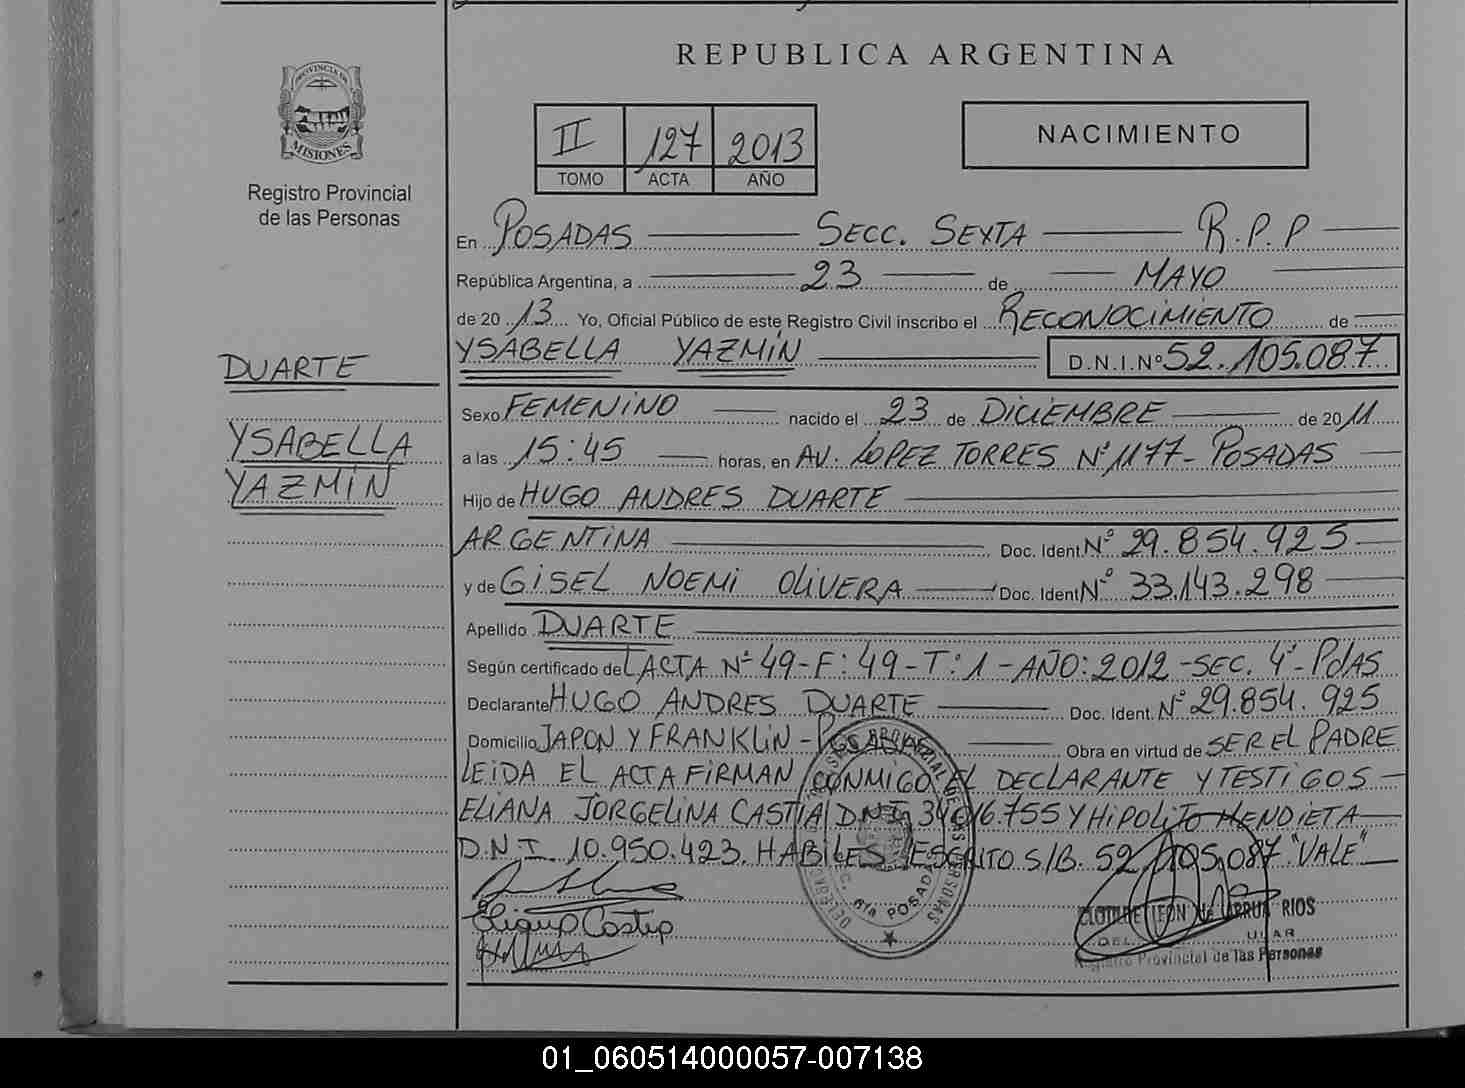 REPUBLICA ARGENTINA
PROVINCIA DE
MISIONES
Registro Provincial
de las Personas
II 127 2013
TOMO ACTA AÑO
NACIMIENTO
En POSADAS SECC. SEXTA R.P.P
República Argentina, a 23 de MAYO
de 20 13 Yo, Oficial Público de este Registro Civil inscribo el RECONOCIMIENTO de
YSABELLA YAZMÍN D.N.I.Nº 52.105.087
DUARTE
YSABELLA
YAZMÍN
Sexo FEMENINO nacido el 23 de DICIEMBRE de 2011
a las 15:45 horas, en AV. LOPEZ TORRES Nº 1177 - POSADAS
Hijo de HUGO ANDRES DUARTE
ARGENTINA Doc. Ident. Nº 29.854.925
y de GISEL NOEMI OLIVERA Doc. Ident Nº 33.143.298
Apellido DUARTE
Según certificado del ACTA Nº 49 - F: 49 - T: 1 - AÑO: 2012 - SEC. 4ª - PdAS
Declarante HUGO ANDRES DUARTE Doc. Ident. Nº 29.854.925
Domicilio JAPON Y FRANKLIN - POSADAS Obra en virtud de SER EL PADRE
LEIDA EL ACTA FIRMAN CONMIGO EL DECLARANTE Y TESTIGOS
ELIANA JORGELINA CASTIA D.N.I. Y HIPOLITO MENDIETA
D.N.I. 10.950.423. HABILES. ESCRITO S/B. 52.105.087 "VALE"
6ta POSADAS
LEON de RIOS
Registro Provincial de las Personas
01_060514000057-007138